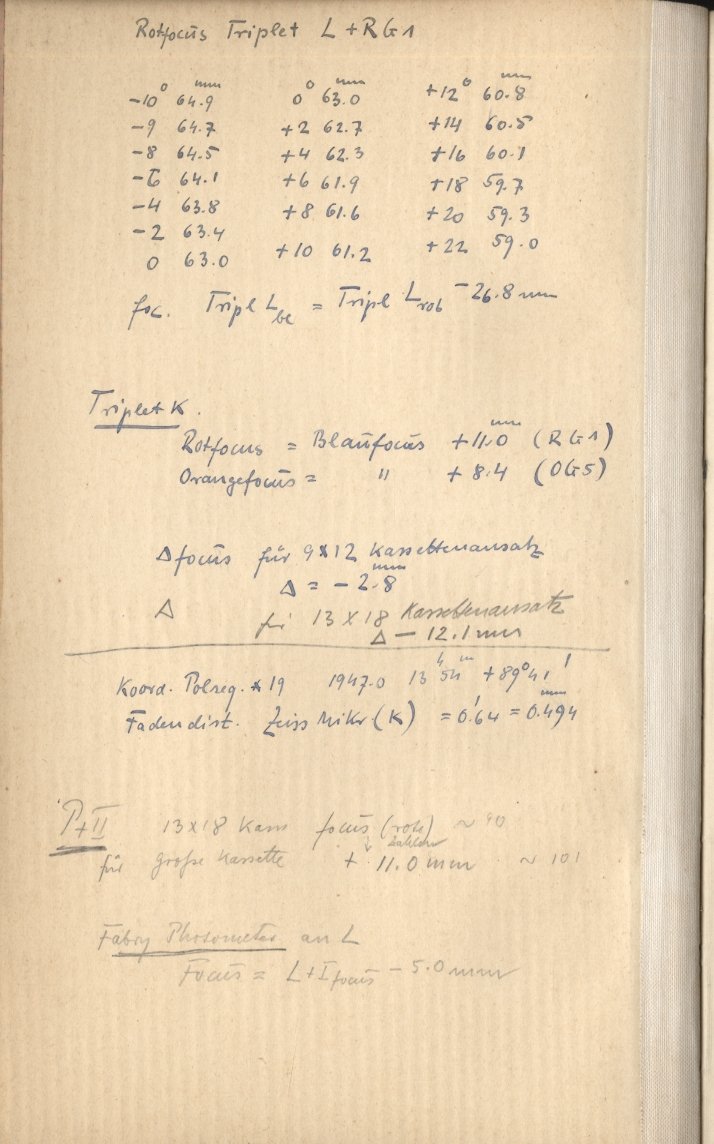 Rotfocus Triplet L + RG1
-10° 64.9 mm   0° 63.0 mm   +12° 60.8 mm
-9 64.7   +2 62.7   +14 60.5
-8 64.5   +4 62.3   +16 60.1
-6 64.1   +6 61.9   +18 59.7
-4 63.8   +8 61.6   +20 59.3
-2 63.4   +10 61.2   +22 59.0
0 63.0
foc. Tripl L bl = Tripl L rot -26.8 mm
Triplet K.
Rotfocus = Blaufocus +11.0 mm (RG1)
Orangefocus = " +8.4 (OG5)
Δ focus für 9x12 Kassettenansatz
Δ = -2.8 mm
Δ für 13x18 Kassettenansatz
Δ - 12.1 mm
Koord. Polreg. * 19 1947.0 13h 54m +89°41'
Fadendist. Zeiss Mikr (K) = 0.'64 = 0.494 mm
P+II 13x18 Kass focus (rot) ~ 90
für große Kassette + 11.0 mm ~ 101
Fabry Photometer an L
Focus = L+I focus - 5.0 mm